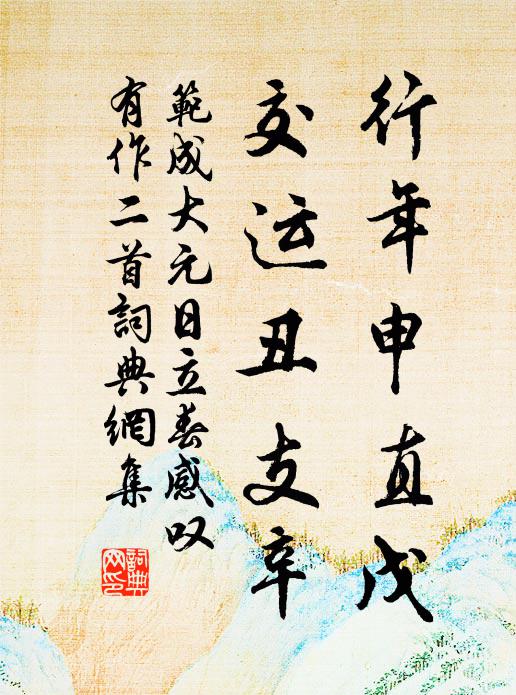 行年申直戊
交运丑支辛
範成大元日立春感叹
有作二首詞典網集
詞典
网印